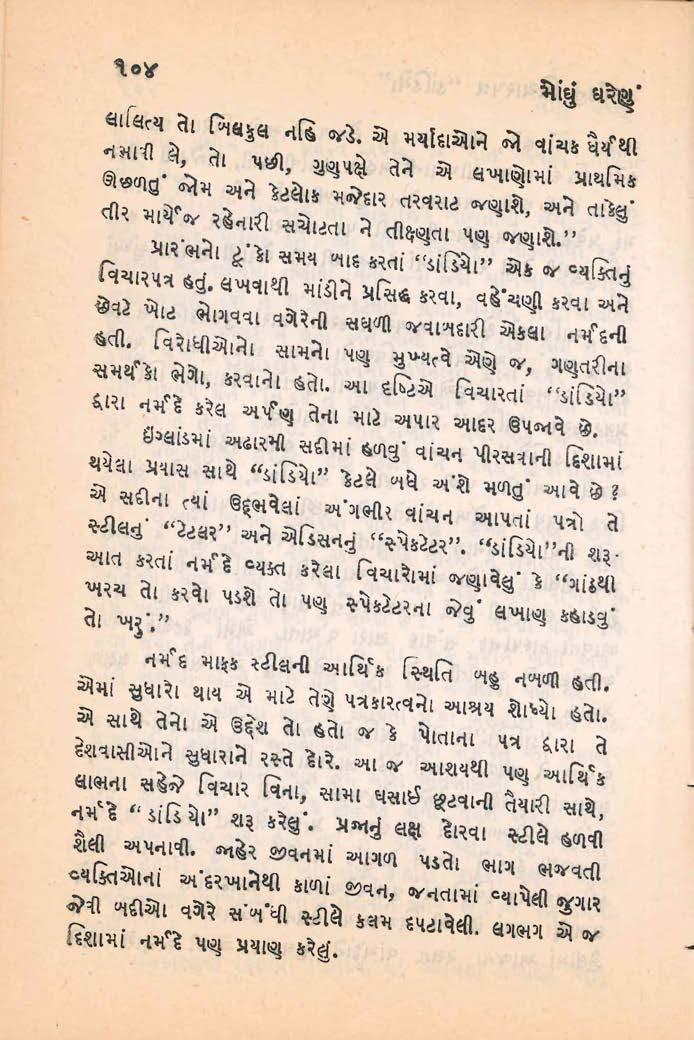 ૧૦૪
મોંઘું ઘરેણું
લાલિત્ય તો બિલકુલ નહિ જડે. એ મર્યાદાઓને જો વાંચક ધૈર્યથી
નભાવી લે, તો પછી, ગુણપક્ષે તેને એ લખાણોમાં પ્રાથમિક
ઊછળતું જોમ અને કેટલોક મજેદાર તરવરાટ જણાશે, અને તાકેલું
તીર માર્યેજ રહેનારી સચોટતા ને તીક્ષ્ણતા પણ જણાશે.”
પ્રારંભનો ટૂંકો સમય બાદ કરતાં “ડાંડિયો” એક જ વ્યક્તિનું
વિચારપત્ર હતું. લખવાથી માંડીને પ્રસિદ્ધ કરવા, વહેંચણી કરવા અને
છેવટે ખોટ ભોગવવા વગેરેની સઘળી જવાબદારી એકલા નર્મદની
હતી. વિરોધીઓનો સામનો પણ મુખ્યત્વે એણે જ, ગણતરીના
સમર્થકો ભેગો, કરવાનો હતો. આ દૃષ્ટિએ વિચારતાં “ડાંડિયો”
દ્વારા નર્મદે કરેલ અર્પણ તેના માટે અપાર આદર ઉપજાવે છે.
ઇંગ્લાંડમાં અઢારમી સદીમાં હળવું વાંચન પીરસવાની દિશામાં
થયેલા પ્રયાસ સાથે “ડાંડિયો” કેટલે બધે અંશે મળતું આવે છે ?
એ સદીના ત્યાં ઉદ્ભવેલાં અગંભીર વાંચન આપતાં પત્રો તે
સ્ટીલનું “ટેટલર” અને એડિસનનું “સ્પેકટેટર”. “ડાંડિયો”ની શરૂ-
આત કરતાં નર્મદે વ્યક્ત કરેલા વિચારોમાં જણાવેલું કે “ગાંઠથી
ખરચ તો કરવો પડશે તો પણ સ્પેકટેટરના જેવું લખાણ કહાડવું
તો ખરું.”
નર્મદ માફક સ્ટીલની આર્થિક સ્થિતિ બહુ નબળી હતી.
એમાં સુધારો થાય એ માટે તેણે પત્રકારત્વનો આશ્રય શોધ્યો હતો.
એ સાથે તેનો એ ઉદ્દેશ તો હતો જ કે પોતાના પત્ર દ્વારા તે
દેશવાસીઓને સુધારાને રસ્તે દોરે. આ જ આશયથી પણ આર્થિક
લાભના સહેજે વિચાર વિના, સામા ઘસાઈ છૂટવાની તૈયારી સાથે,
નર્મદે “ડાંડિયો” શરૂ કરેલું. પ્રજાનું લક્ષ દોરવા સ્ટીલે હળવી
શૈલી અપનાવી. જાહેર જીવનમાં આગળ પડતો ભાગ ભજવતી
વ્યક્તિઓનાં અંદરખાનેથી કાળાં જીવન, જનતામાં વ્યાપેલી જુગાર
જેવી બદીઓ વગેરે સંબંધી સ્ટીલે કલમ દપટાવેલી. લગભગ એ જ
દિશામાં નર્મદે પણ પ્રયાણ કરેલું.